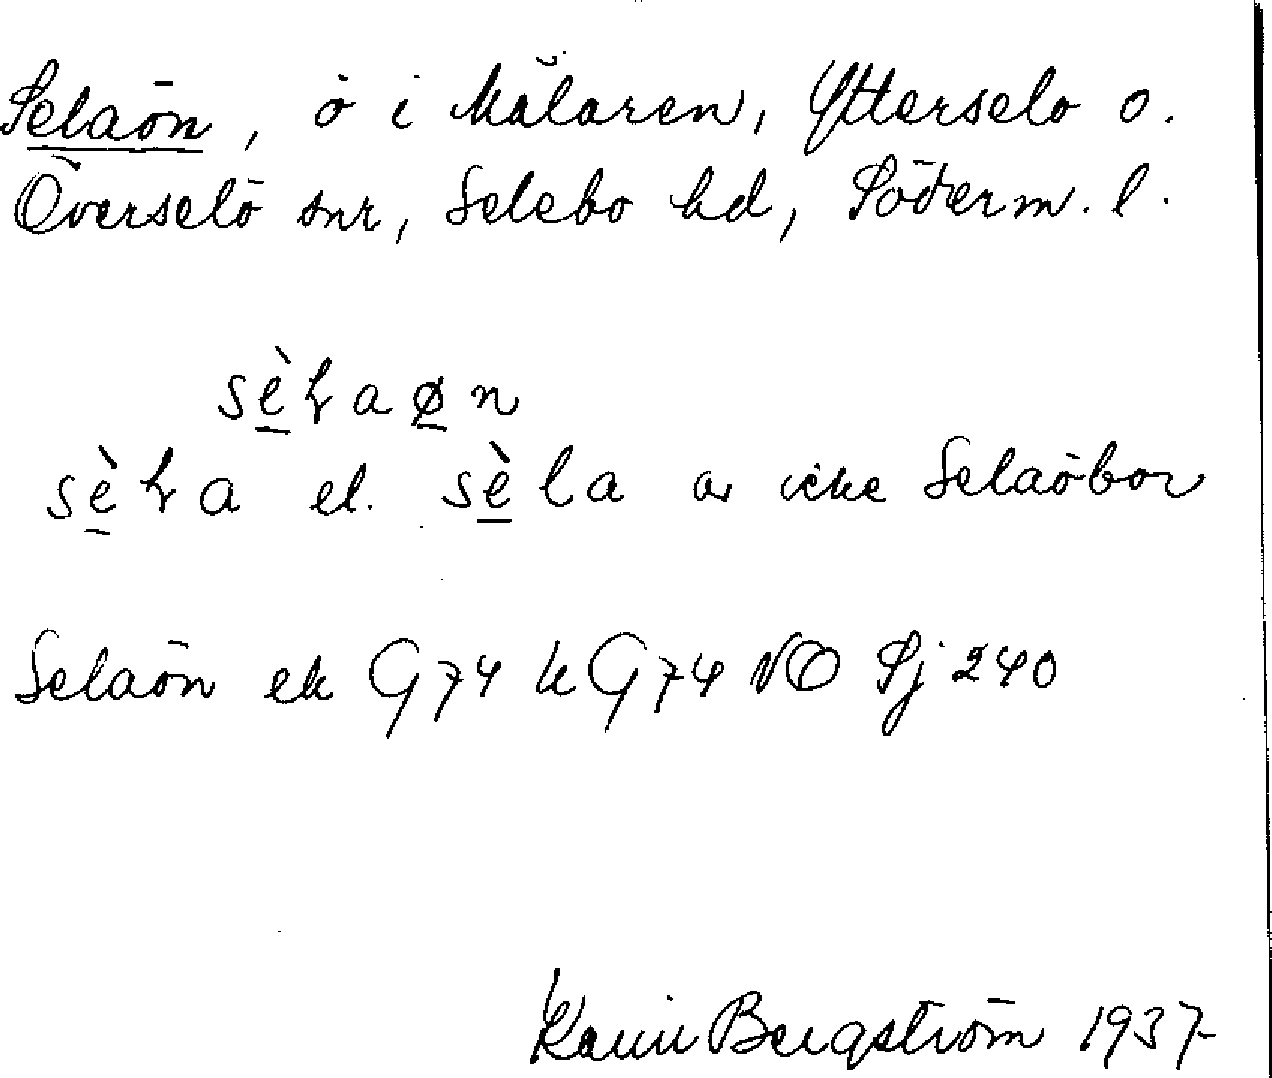 Selaön, ö i Mälaren, Ytterselö o.
Överselö snr, Selebo hd, Söderm. l.
sè̱ƚaø̱n
sè̱ƚa el. sè̱la av icke Selaöbor
Selaön ek G74 k G74 NO Sj 240
Karin Bergström 1937